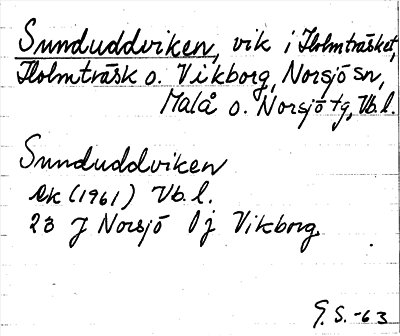 Sunduddviken, vik i Holmträsket,
Holmträsk o. Vikborg, Norsjö sn,
Malå o. Norsjö tg, Vb.l.
Sunduddviken
ek (1961) Vb.l.
23 J Norsjö 1j Vikborg
G.S.-63